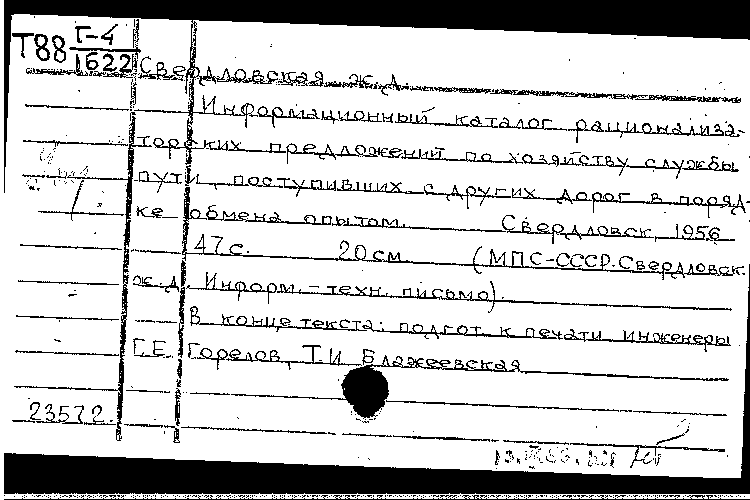 Т88 Г-4
1622
Свердловская ж.д.
Информационный каталог рационализа-
торских предложений по хозяйству службы
пути, поступивших с других дорог в поряд-
ке обмена опытом. Свердловск, 1956
47 с. 20 см. (МПС-СССР. Свердловск.
ж.д. Информ.-техн. письмо).
В конце текста: подгот. к печати инженеры
Г.Е. Горелов, Т.И. Блажеевская
23572.